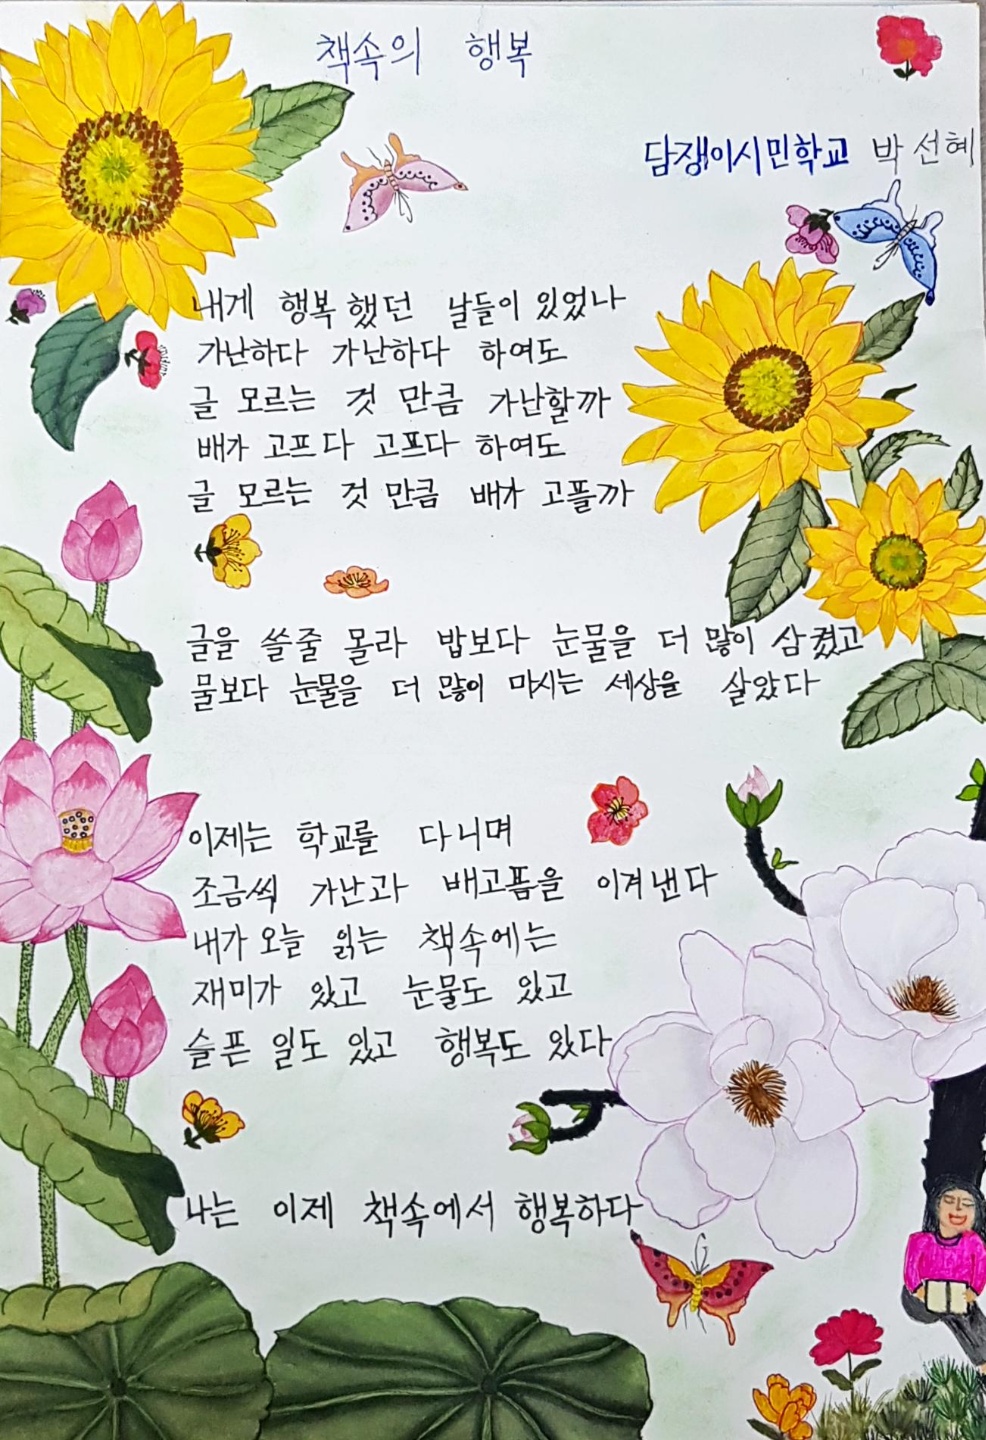 책속의 행복
담쟁이시민학교 박선혜
내게 행복했던 날들이 있었나
가난하다 가난하다 하여도
글 모르는 것 만큼 가난할까
배가 고프다 고프다 하여도
글 모르는 것 만큼 배가 고플까
글을 쓸줄 몰라 밥보다 눈물을 더 많이 삼켰고
물보다 눈물을 더 많이 마시는 세상을 살았다
이제는 학교를 다니며
조금씩 가난과 배고픔을 이겨낸다
내가 오늘 읽는 책속에는
재미가 있고 눈물도 있고
슬픈 일도 있고 행복도 있다
나는 이제 책속에서 행복하다